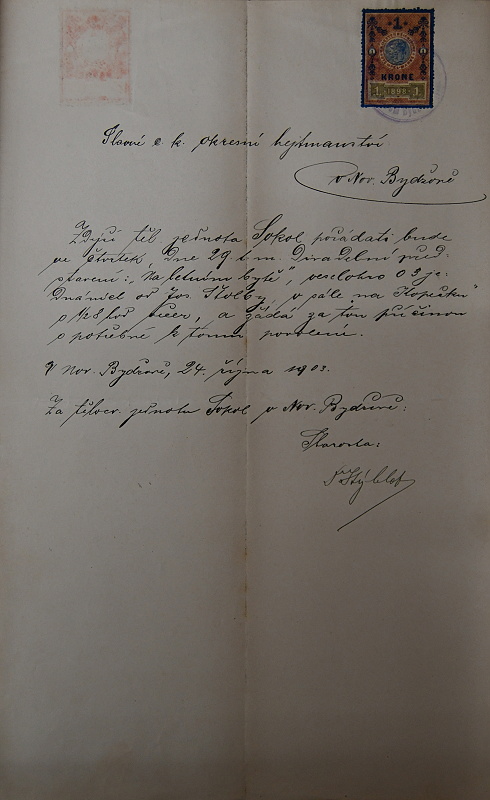 1
KRONE
1 1898 1
Slavné c. k. okresní hejtmanství
v Nov. Bydžově
Zdejší těl. jednota Sokol pořádati bude
ve čtvrtek, dne 29 t. m. divadelní před-
stavení: „Na letním bytě", veselohra o 3 je-
dnáních od Jos. Štolby, v sále „na Kopečku"
o 1/2 8 hod. večer, a žádá za tou příčinou
o potřebné k tomu povolení.
V Nov. Bydžově, 24. října 1903.
Za tělocv. jednotu Sokol v Nov. Bydžově:
Starosta: